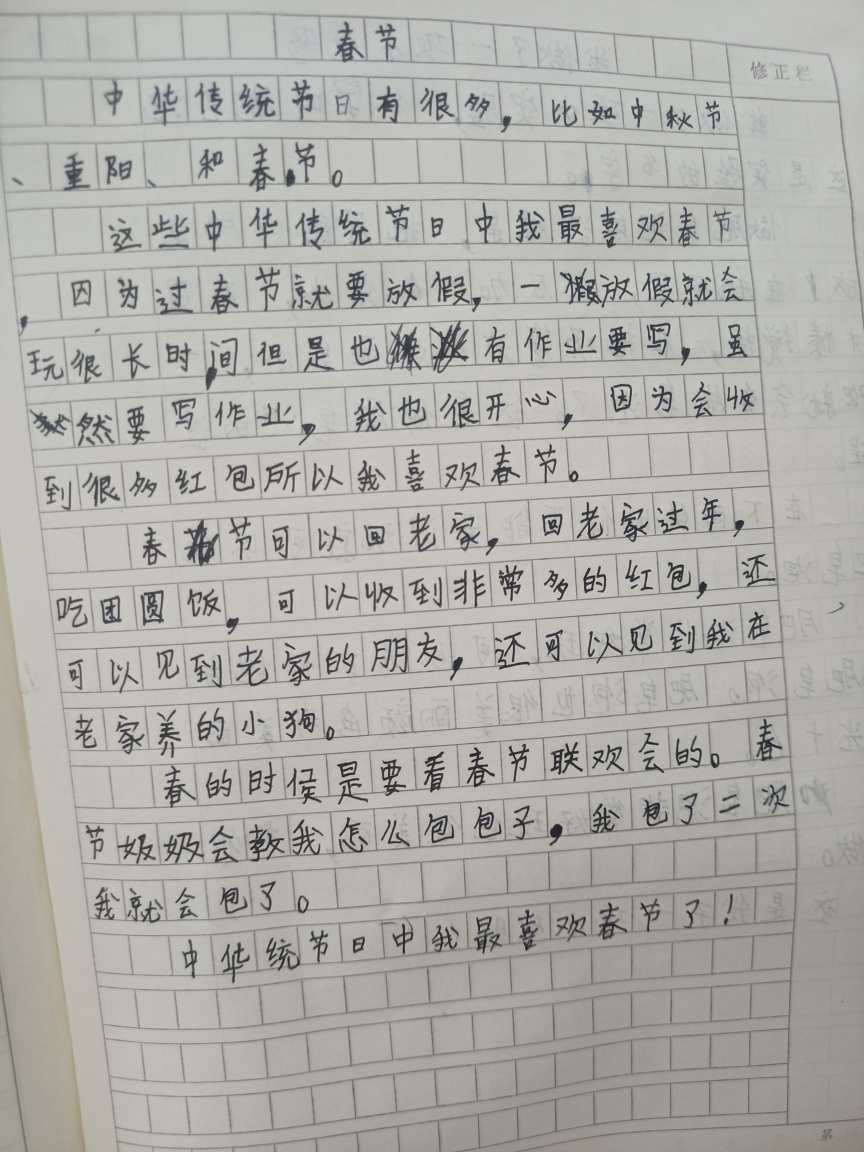 春节
修正栏
中华传统节日有很多，比如中秋节
、重阳、和春节。
这些中华传统节日中我最喜欢春节
，因为过春节就要放假，一放假就会
玩很长时间，但是也有作业要写，虽
然要写作业，我也很开心，因为会收
到很多红包所以我喜欢春节。
春节可以回老家，回老家过年，
吃团圆饭，可以收到非常多的红包，还
可以见到老家的朋友，还可以见到我在
老家养的小狗。
春的时侯是要看春节联欢会的。春
节奶奶会教我怎么包包子，我包了二次
我就会包了。
中华统节日中我最喜欢春节了！
第